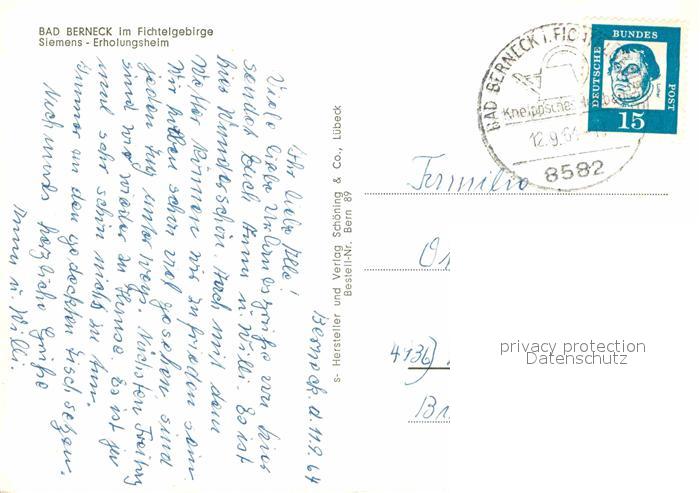 BAD BERNECK im Fichtelgebirge
Siemens - Erholungsheim
BAD BERNECK I. FICHT
Kneippsches
12.9.64
8582
DEUTSCHE BUNDES POST
15
Berneck, d. 11.9.64
Ihr liebe Alle!
Viele liebe Urlaubsgrüße von hier
sendet Euch Anni u. Willi. Es ist
hier wunderschön. Auch mit dem
Wetter können wir zufrieden sein
Wir haben schon viel gesehen sind
jeden Tag unterwegs. Nächsten Freitag
sind wir wieder zu Hause. Es ist ja
mal sehr schön nichts zu tun,
immer an den gedeckten Tisch setzen.
Nochmals herzliche Grüße
Anni u. Willi.
s- Hersteller und Verlag Schöning & Co., Lübeck
Bestell-Nr. Bern 89
Familie
4136)
privacy protection
Datenschutz